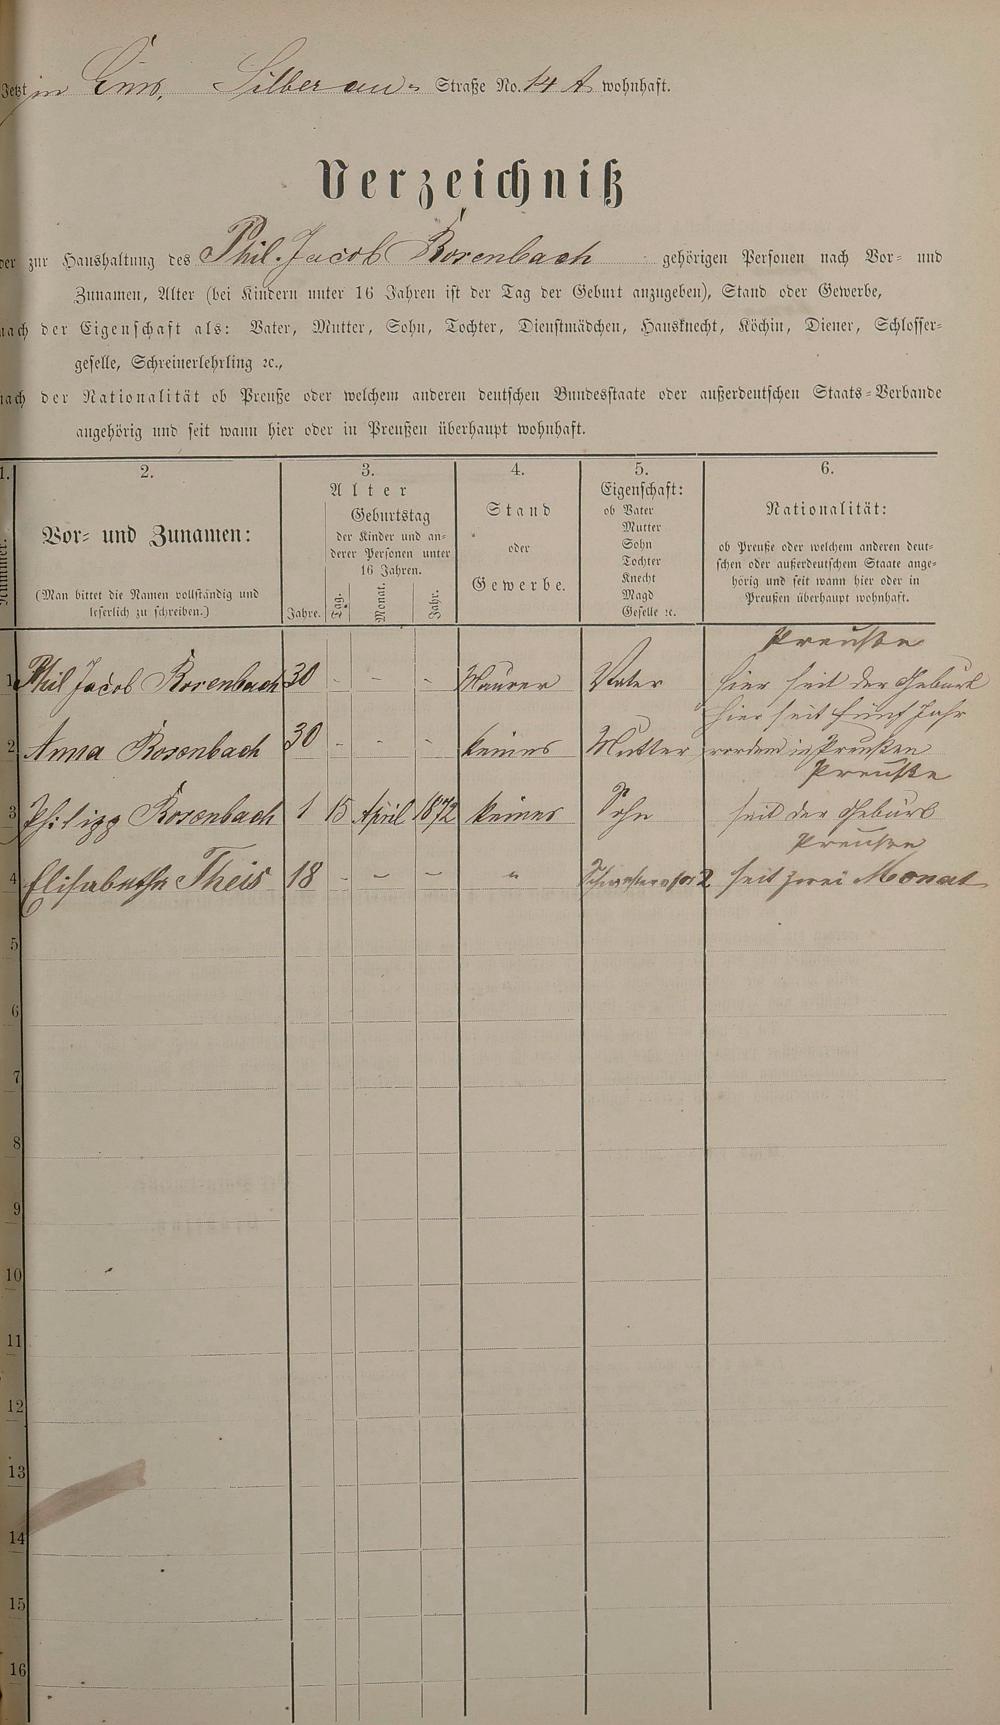 Jetzt in Ems, Silberau- Straße No. 14 A wohnhaft.
Verzeichniß
der zur Haushaltung des Phil. Jacob Rosenbach gehörigen Personen nach Vor- und
Zunamen, Alter (bei Kindern unter 16 Jahren ist der Tag der Geburt anzugeben), Stand oder Gewerbe,
nach der Eigenschaft als: Vater, Mutter, Sohn, Tochter, Dienstmädchen, Hausknecht, Köchin, Diener, Schlosser-
geselle, Schreinerlehrling ꝛc.,
nach der Nationalität ob Preuße oder welchem anderen deutschen Bundesstaate oder außerdeutschen Staats-Verbande
angehörig und seit wann hier oder in Preußen überhaupt wohnhaft.
1. 2. 3. 4. 5. 6.
Nummer.
Vor- und Zunamen:
(Man bittet die Namen vollständig und
leserlich zu schreiben.)
Alter
Geburtstag
der Kinder und an-
derer Personen unter
16 Jahren.
Jahre. Tag. Monat. Jahr.
Stand
oder
Gewerbe.
Eigenschaft:
ob Vater
Mutter
Sohn
Tochter
Knecht
Magd
Geselle ꝛc.
Nationalität:
ob Preuße oder welchem anderen deut-
schen oder außerdeutschem Staate ange-
hörig und seit wann hier oder in
Preußen überhaupt wohnhaft.
Preuße
1 Phil Jacob Rosenbach 30 - - - Maurer Vater hier seit der Geburt
hier seit fünf Jahr
2 Anna Rosenbach 30 - - - keines Mutter in Preußen
Preuße
3 Philipp Rosenbach 1 15 April 1872 keines Sohn seit der Geburt
Preuße
4 Elisabetha Theis 18 - - - " seit zwei Monat
5
6
7
8
9
10
11
12
13
14
15
16